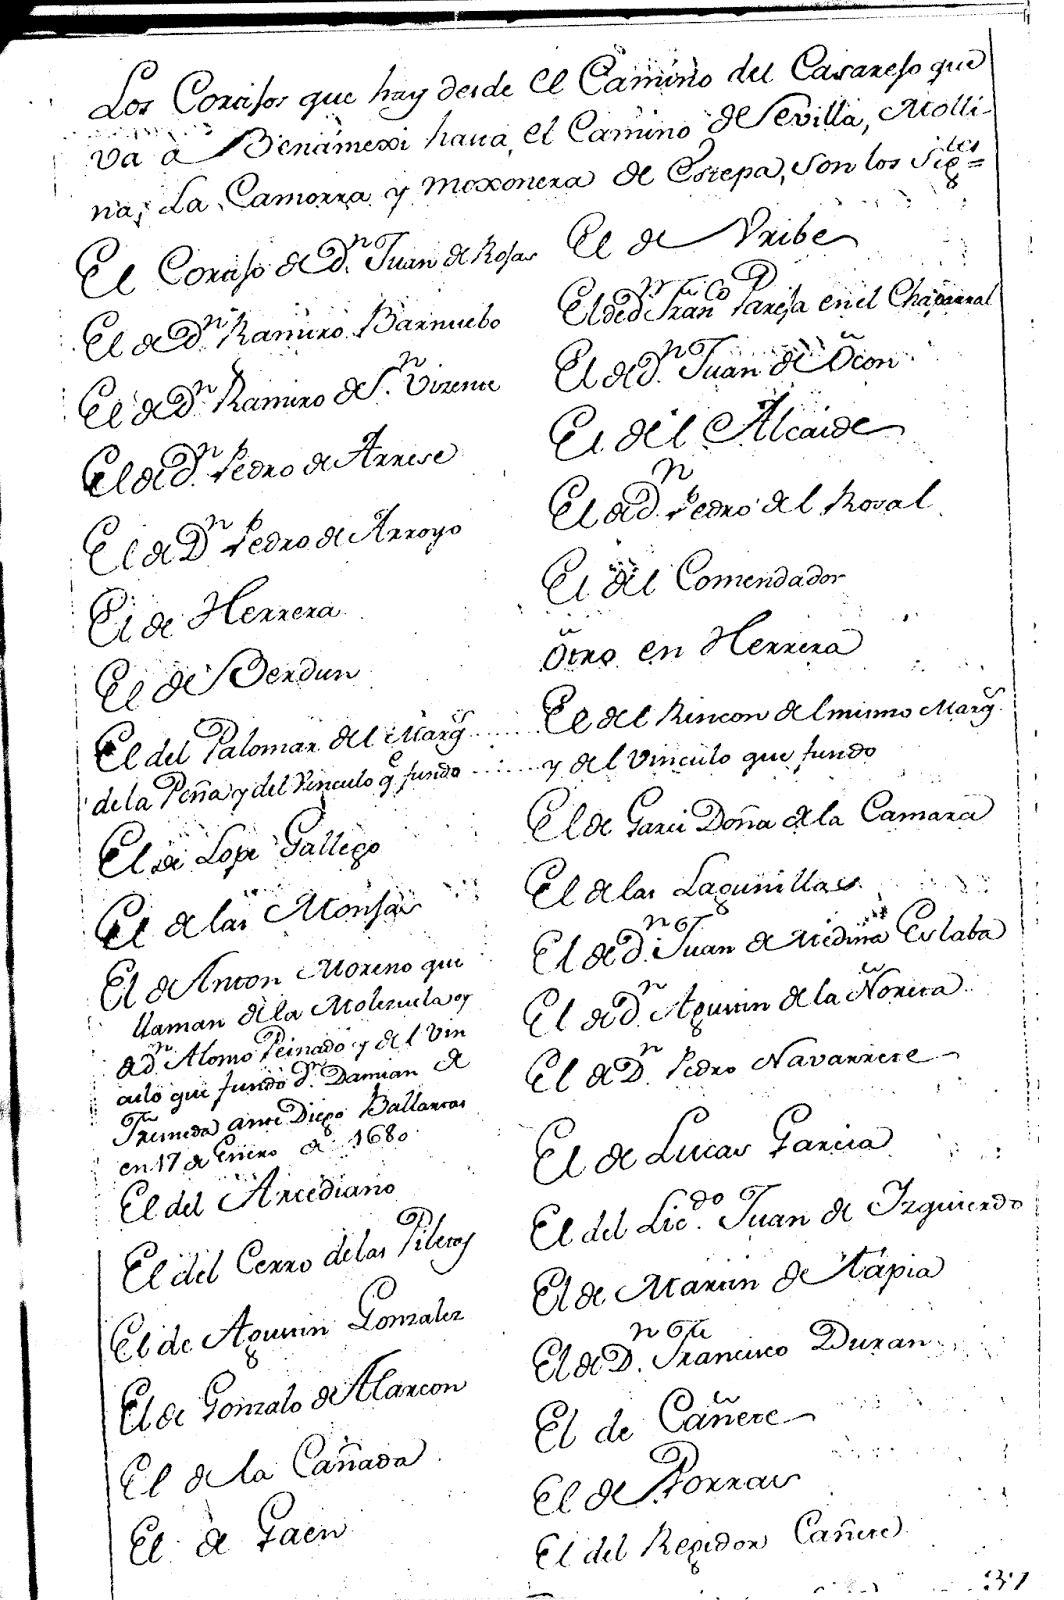 Los Cortisos que hay desde el Camino del Casareso que
va a Benamexi hacia, el Camino de Sevilla, Molli-
na, La Camorra y moxonera de Estepa, son los sig.tes =
El Cortiso de D.n Juan de Rosas
El de D.n Ramiro Barnuebo
El de D.n Ramiro de S.n Vizente
El de D.n Pedro de Arrese
El de D.n Pedro de Arroyo
El de Herrera
El de Berdun
El del Palomar del Marq.s
de la Peña y del Vinculo q.e fundo
El de Lope Gallego
El de las Monjas
El de Anton Moreno que
llaman de la Molezuela oy
de d.n Alonso Peinado y del Vin
culo que fundo d.n Damian de
en 17 de Enero de 1680
El del Arcediano
El del Cerro de las Piletas
El de Agustin Gonzalez
El de Gonzalo de Alarcon
El de la Cañada
El de Gaen
El de Uribe
El de d.n Fran.co Pareja en el Chaparral
El de D.n Juan de Ocon
El del Alcaide
El de D.n Pedro del Rosal
El del Comendador
Otro en Herrera
El del Rincon del mismo Marq.s
y del Vinculo que fundo
El de Garci Doña de la Camara
El de las Lagunillas
El de D.n Juan de Medina Eslaba
El de D.n Agustin de la Ñoreta
El de D.n Pedro Navarrete
El de Lucas Garcia
El del Lic.do Juan de Izquierdo
El de Martin de Tapia
El de D.n Francisco Duran
El de Cañete
El de Porras
El del Regidor Cañete